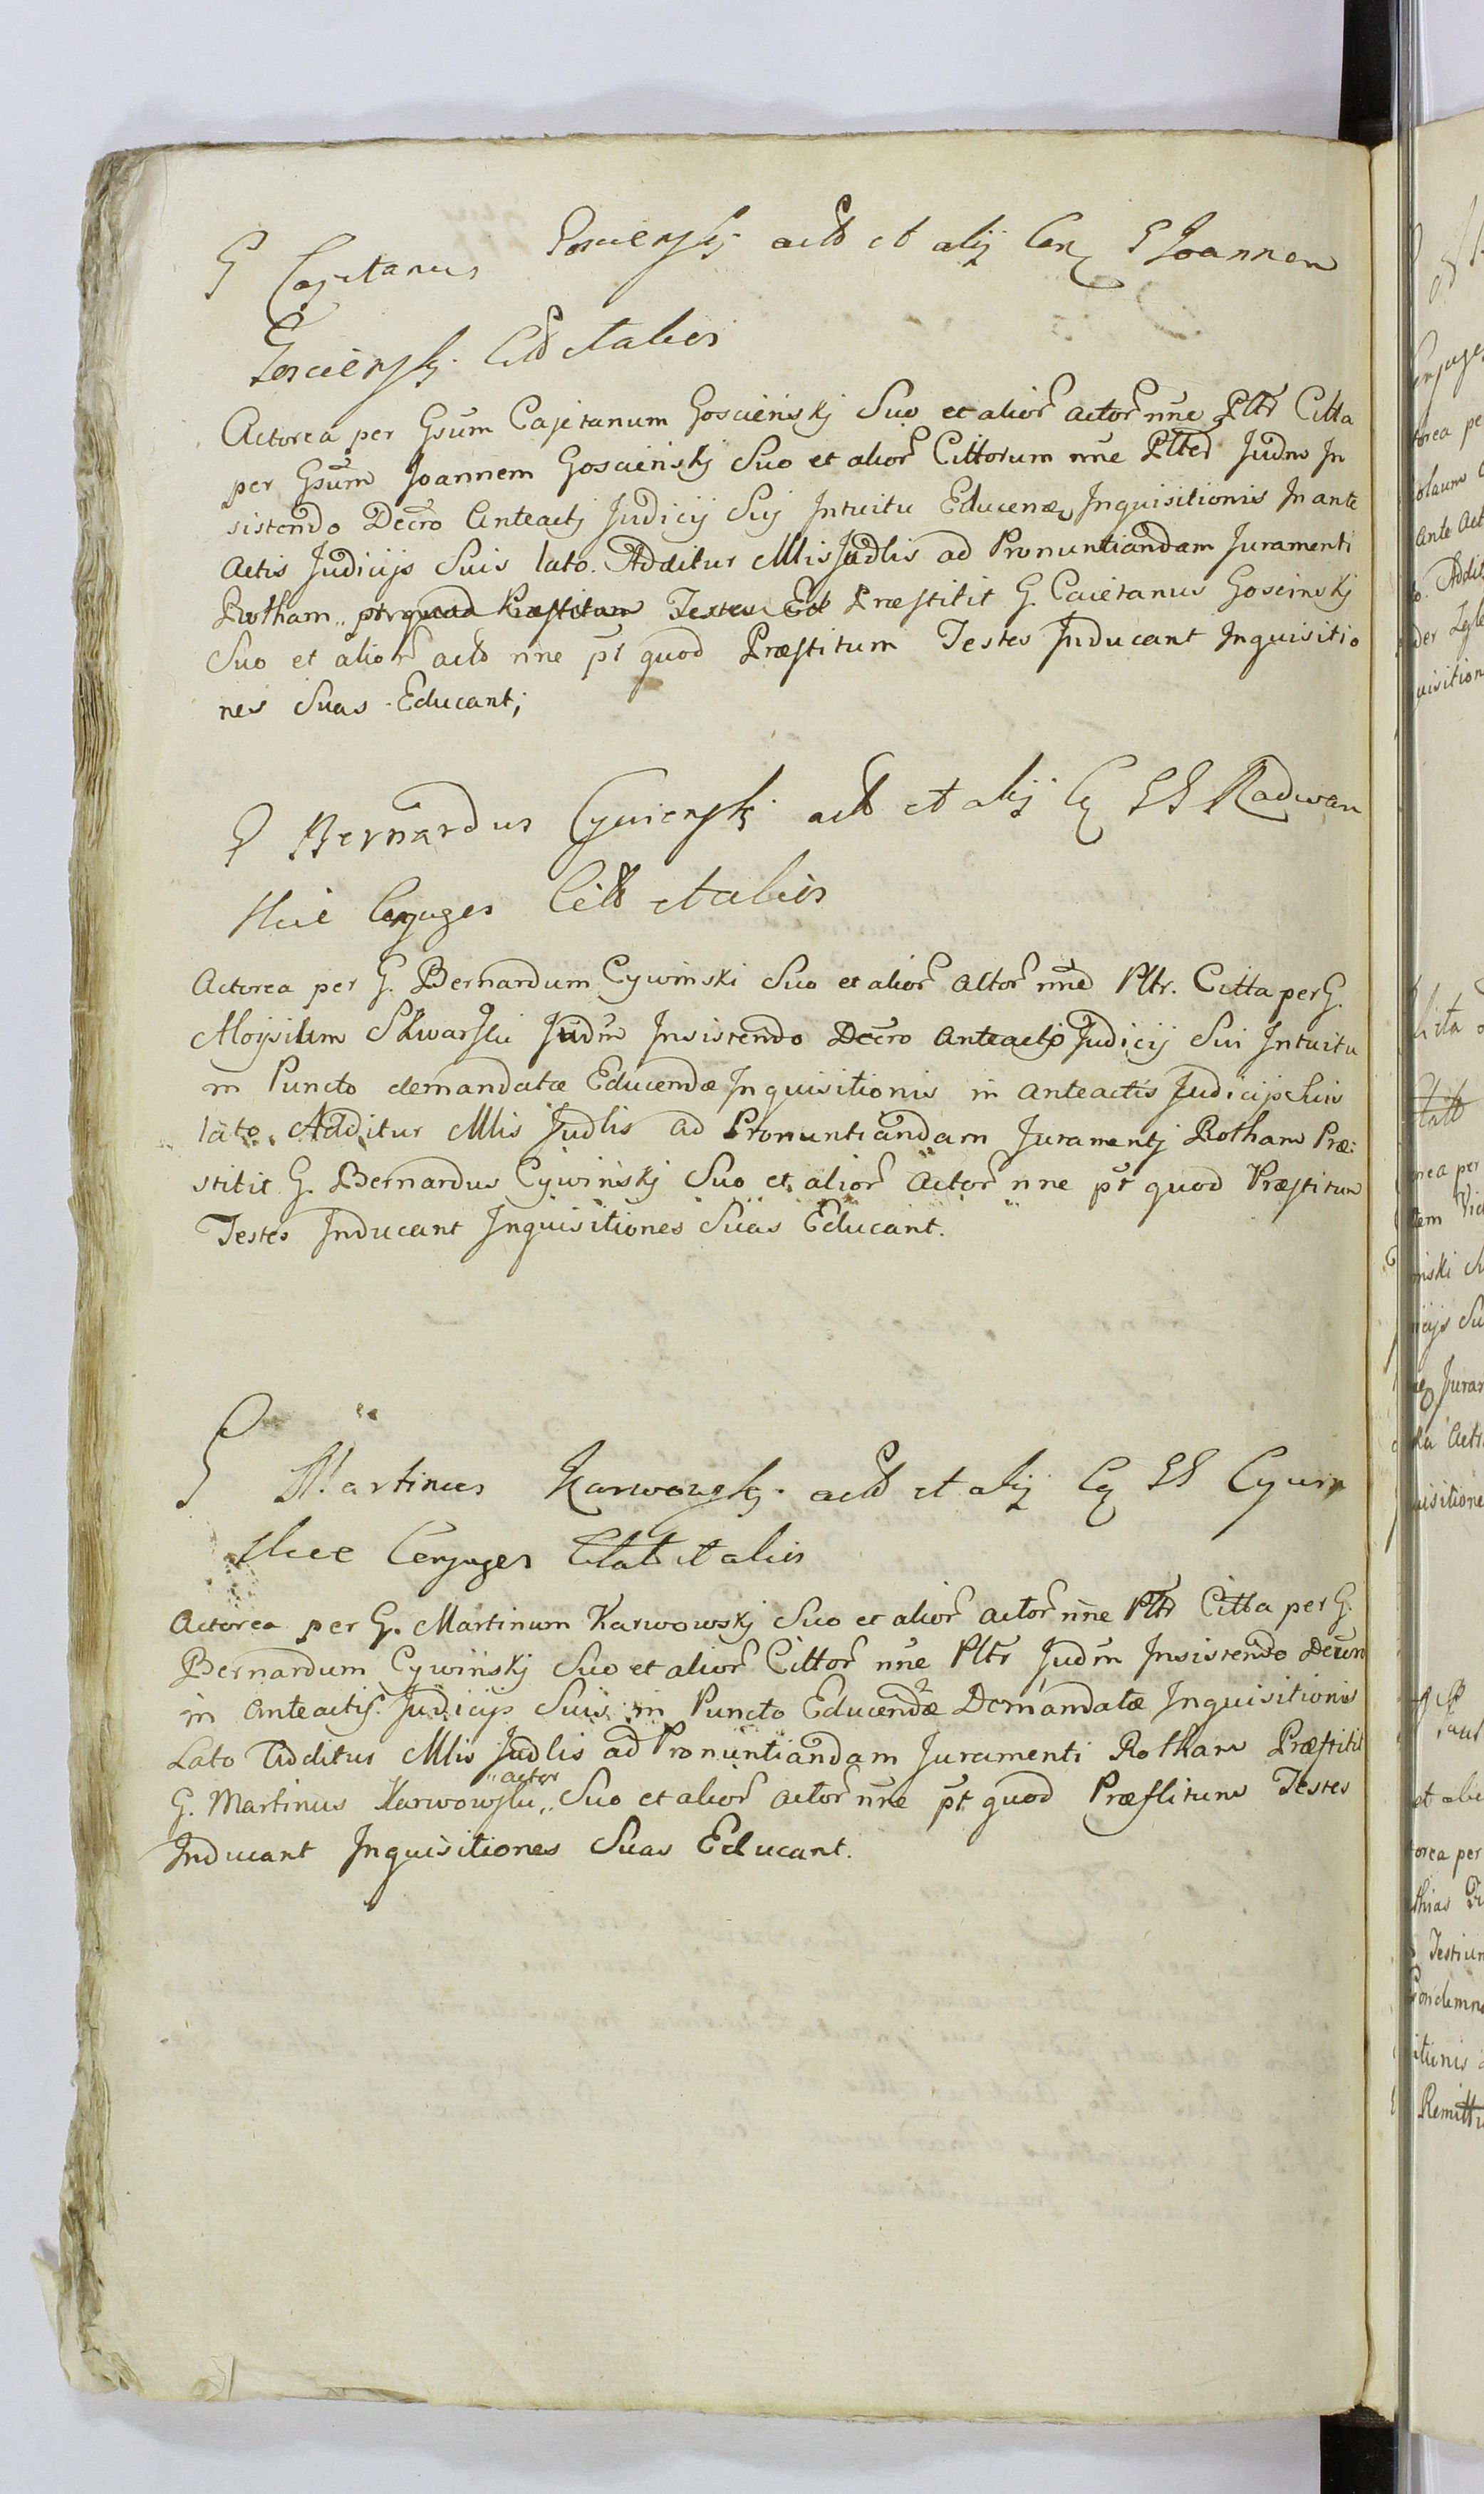 G Cajetanus Gościenskj actо et alij Con G Joannem
Gościenskj Citto et alios
Actorea per Gsum Cajetanum Goscieńskj Suo et alior actor nne Pltr Citta
per Gsum Joannem Goscieńskj Suo et alior Cittorum nne Plted Judm In
sistendo Decro Anteacti Judicij Sui Intuitu Educenæ Inquisitionis In ante
Actis Judicijs Suis lato. Additur Mlis Judlis ad Pronuntiandam Juramenti
Rotham ptr quod Præstitum Testes Ed Præstitit G. Caietanus Goscinskj
Suo et alior acto nne pt quod Præstitum Testes Inducant Inquisitio
nes Suas Educant;
G Bernardus Cywienskj acto et alij C GG Radwan
skie Conjuges Citto et alios
Actorea per G. Bernardum Cywinski Suo et alior Actor nne Pltr. Citta per G.
Aloysium Skwarski Judm Insistendo Decro Anteacti Judicij Sui Intuitu
in Puncto demandatæ Educendæ Inquisitionis in anteactis Judicijs Suis
lato. Additur Mlis Judlis ad Pronuntiandam Juramentj Rotham Præ:
stitit G. Bernardus Cywińskj Suo et alior Actor nne pt quod Præstitum
Testes Inducant Inquisitiones Suas Educant.
G Martinus Karwowskj acto et alij C GG Cywin
skie Conjuges Citat et alios
Actorea per G. Martinum Karwowskj Suo et alior actor nne Pltr Citta per G.
Bernardum Cywińskj Suo et alior Cittor nne Pltr Judm Insistendo Decro
in Anteactis Judicijs Suis in Puncto Educendæ Demandatæ Inquisitionis
Lato Additus Mlis Judlis ad Pronuntiandam Juramenti Rotham Præstitit
actor
G. Martinus Karwowski Suo et alior actor nne pt quod Præstitum Testes
Inducant Inquisitiones Suas Educant.